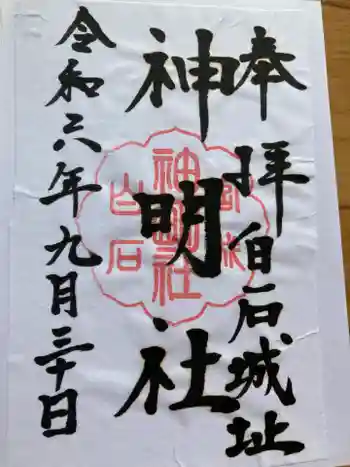 奉拝白石城址
神明社
令和六年九月三十日
神明社
白石